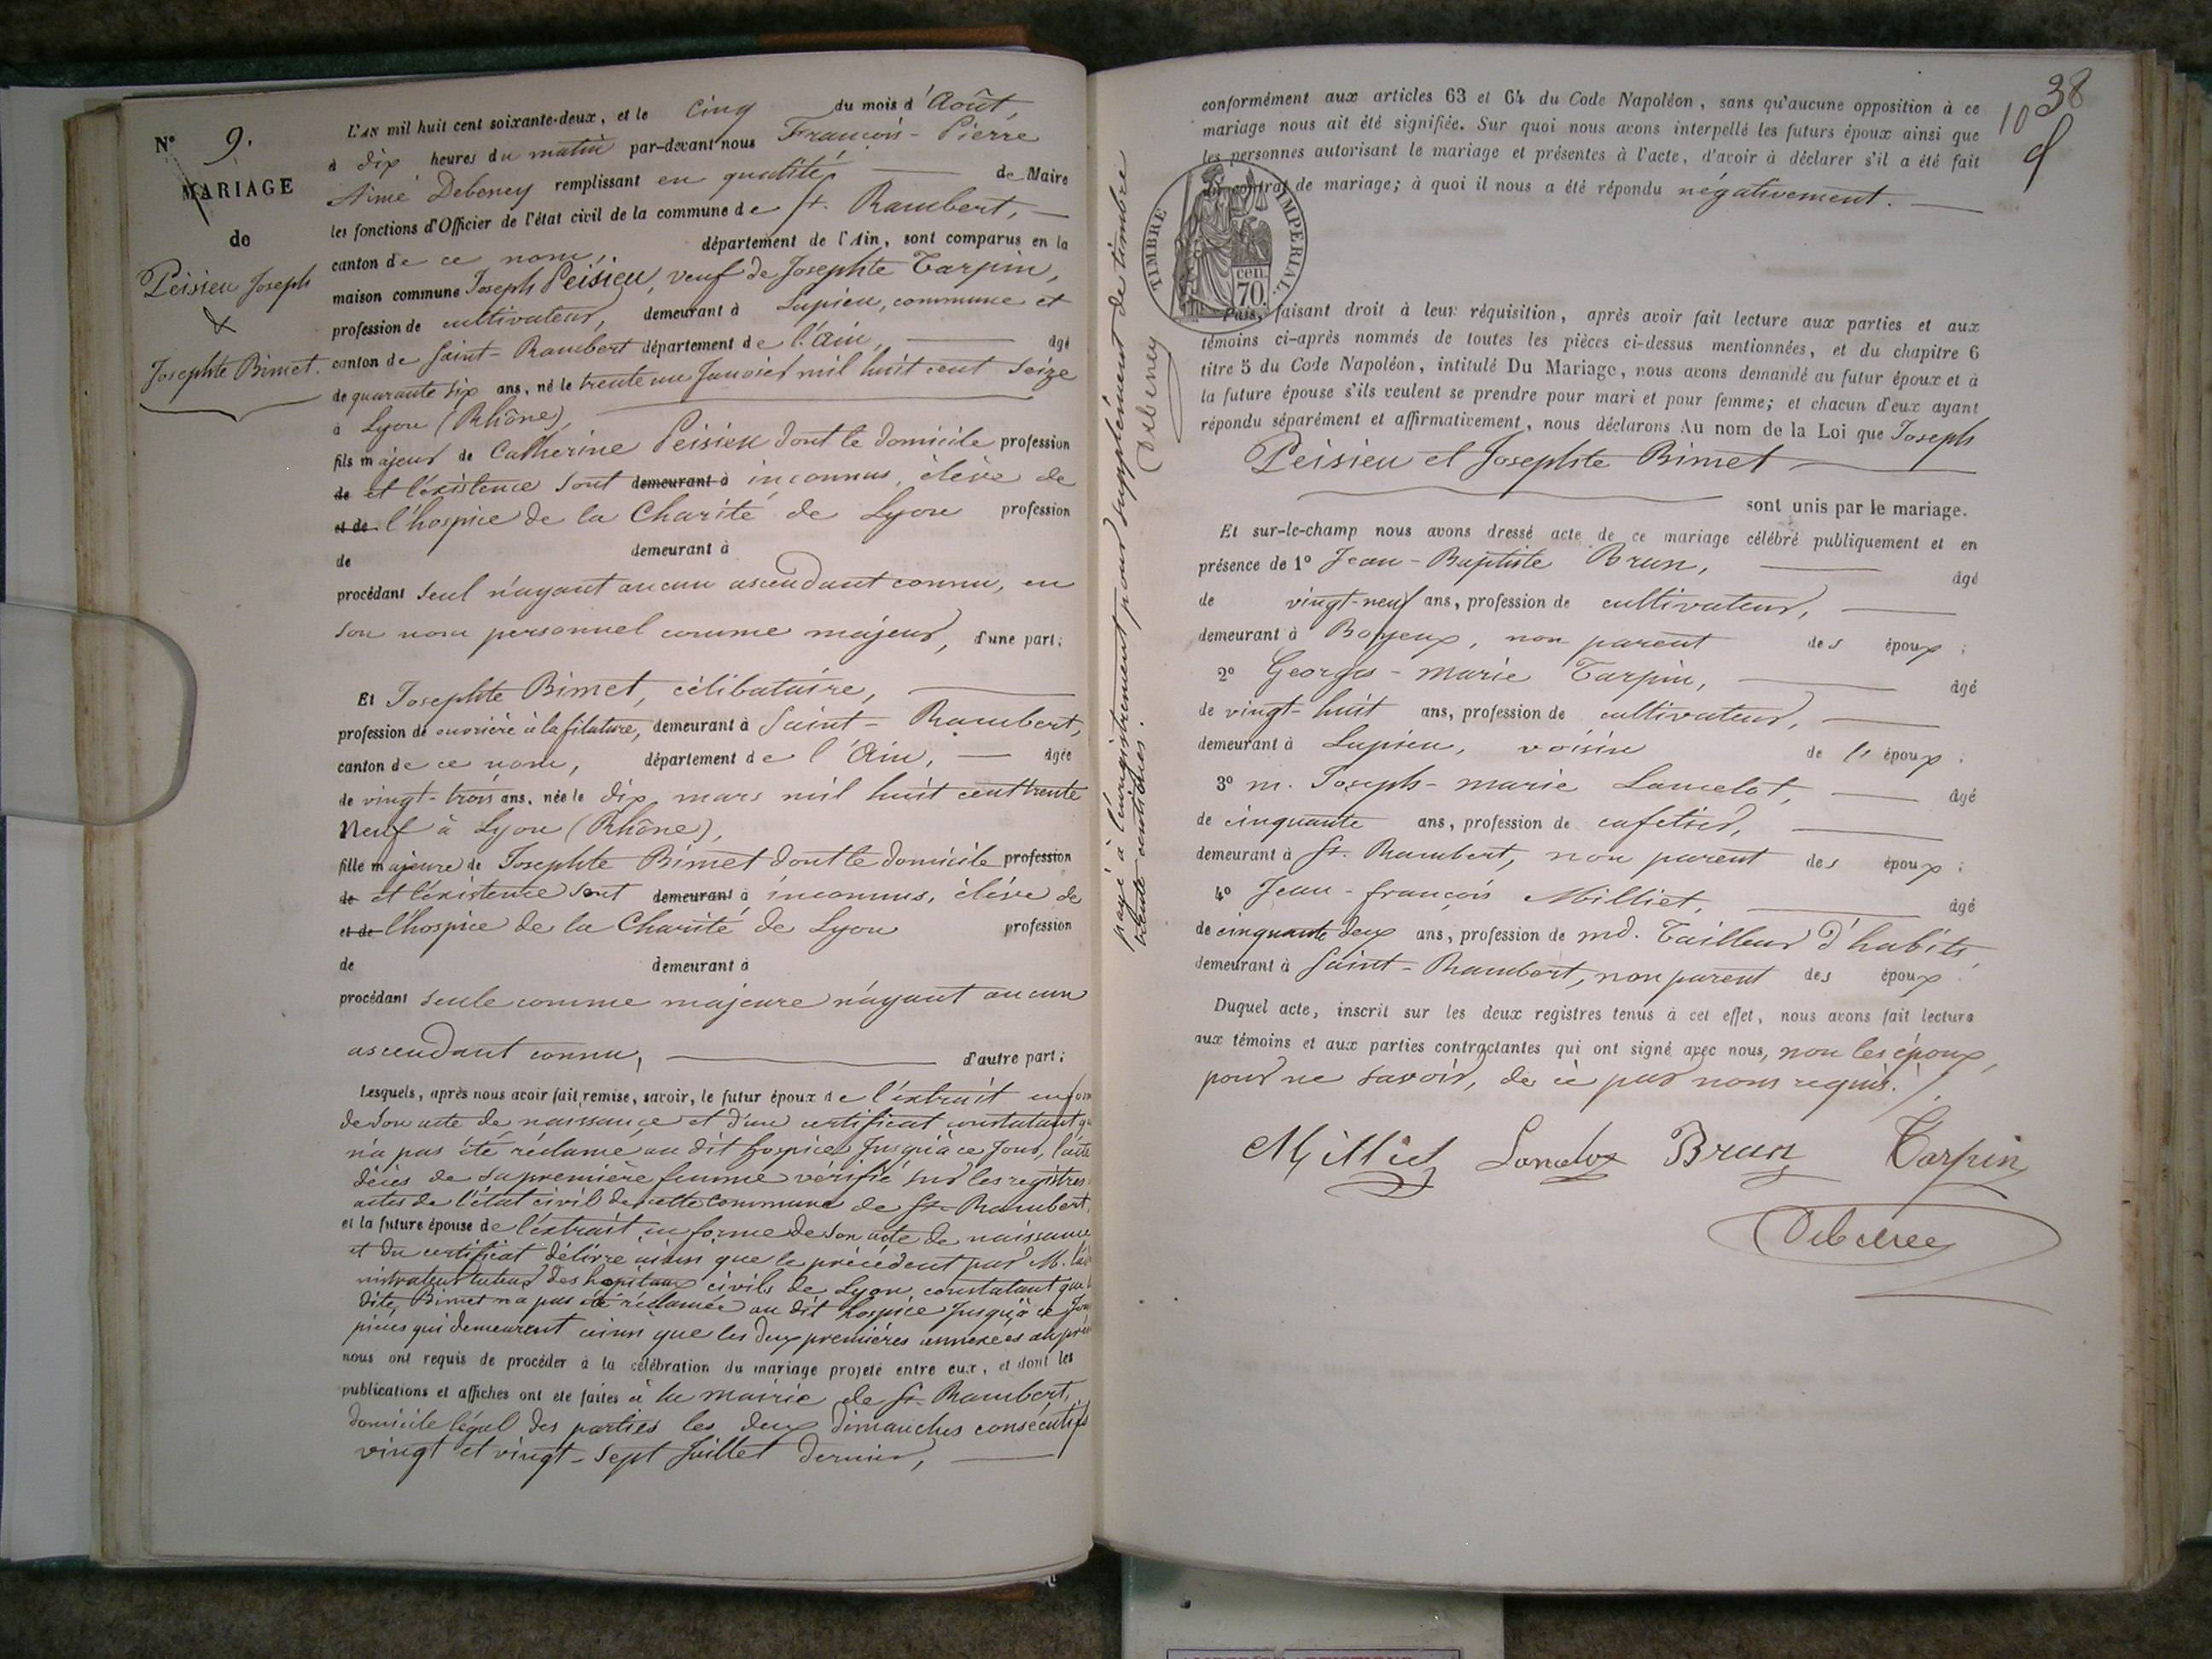 N° 9.
MARIAGE
de
Peisieu Joseph
&
Josephte Bimet.
L'AN mil huit cent soixante-deux, et le Cinq du mois d'Août,
à dix heures du matin par-devant nous François-Pierre
Aimé Debeney remplissant en qualité de Maire
les fonctions d'Officier de l'état civil de la commune de St. Rambert,
canton de ce nom, département de l'Ain, sont comparus en la
maison commune Joseph Peisieu, veuf de Josephte Tarpin,
profession de cultivateur, demeurant à Lupieu, commune et
canton de Saint-Rambert département de l'Ain, âgé
de quarante six ans, né le trente un Janvier mil huit cent seize
à Lyon (Rhône),
fils majeur de Catherine Peisieu dont le domicile profession
de et l'existence sont demeurant à inconnus, élève de
et de l'hospice de la Charité de Lyon profession
de demeurant à
procédant seul n'ayant aucun ascendant connu, en
son nom personnel comme majeur, d'une part;
Et Josephte Bimet, célibataire,
profession de ouvrière à la filature, demeurant à Saint-Rambert,
canton de ce nom, département de l'Ain, âgée
de vingt-trois ans, née le dix mars mil huit cent trente
Neuf à Lyon (Rhône),
fille majeure de Josephte Bimet dont le domicile profession
de et l'existence sont demeurant à inconnus, élève de
et de l'hospice de la Charité de Lyon profession
de demeurant à
procédant seule comme majeure n'ayant aucun
ascendant connu, d'autre part;
Lesquels, après nous avoir fait remise, savoir, le futur époux de l'extrait en
de son acte de naissance et d'un certificat constatant
n'a pas été réclamé au dit hospice jusqu'à ce jour, l'acte
décès de sa première femme vérifié sur les registres
actes de l'état civil de cette commune de St-Rambert,
et la future épouse de l'extrait en forme de son acte de naissance
et du certificat délivré ainsi que le précédent par M.
tuteur des hopitaux civils de Lyon, constatant que
dite Bimet n'a pas été réclamée au dit hospice jusqu'à ce
pièces qui demeurent ainsi que les deux premières annexées au
nous ont requis de procéder à la célébration du mariage projeté entre eux, et dont les
publications et affiches ont été faites à la mairie de St-Rambert,
domicile légal des parties les deux dimanches consécutifs
vingt et vingt-sept Juillet dernier,
payé à l'enregistrement pour supplément de timbre
centimes.
Debeney
38
10
conformément aux articles 63 et 64 du Code Napoléon, sans qu'aucune opposition à ce
mariage nous ait été signifiée. Sur quoi nous avons interpellé les futurs époux ainsi que
les personnes autorisant le mariage et présentes à l'acte, d'avoir à déclarer s'il a été fait
un contrat de mariage; à quoi il nous a été répondu négativement.
TIMBRE IMPERIAL
cen.
70.
Puis, faisant droit à leur réquisition, après avoir fait lecture aux parties et aux
témoins ci-après nommés de toutes les pièces ci-dessus mentionnées, et du chapitre 6
titre 5 du Code Napoléon, intitulé Du Mariage, nous avons demandé au futur époux et à
la future épouse s'ils veulent se prendre pour mari et pour femme; et chacun d'eux ayant
répondu séparément et affirmativement, nous déclarons Au nom de la Loi que Joseph
Peisieu et Josephte Bimet
sont unis par le mariage.
Et sur-le-champ nous avons dressé acte de ce mariage célébré publiquement et en
présence de 1° Jean-Baptiste Brun, âgé
de vingt-neuf ans, profession de cultivateur,
demeurant à Boyeux, non parent des époux;
2° Georges-marie Tarpin, âgé
de vingt-huit ans, profession de cultivateur,
demeurant à Lupieu, voisin de l'époux;
3° m. Joseph-marie Lancelot, âgé
de cinquante ans, profession de cafetier,
demeurant à St. Rambert, non parent des époux;
4° Jean-françois Milliet, âgé
de cinquante deux ans, profession de md. Tailleur d'habits,
demeurant à Saint-Rambert, non parent des époux.
Duquel acte, inscrit sur les deux registres tenus à cet effet, nous avons fait lecture
aux témoins et aux parties contractantes qui ont signé avec nous, non les époux,
pour ne savoir, de ce par nous requis.
Milliet Lancelot Brun Tarpin
Debeney